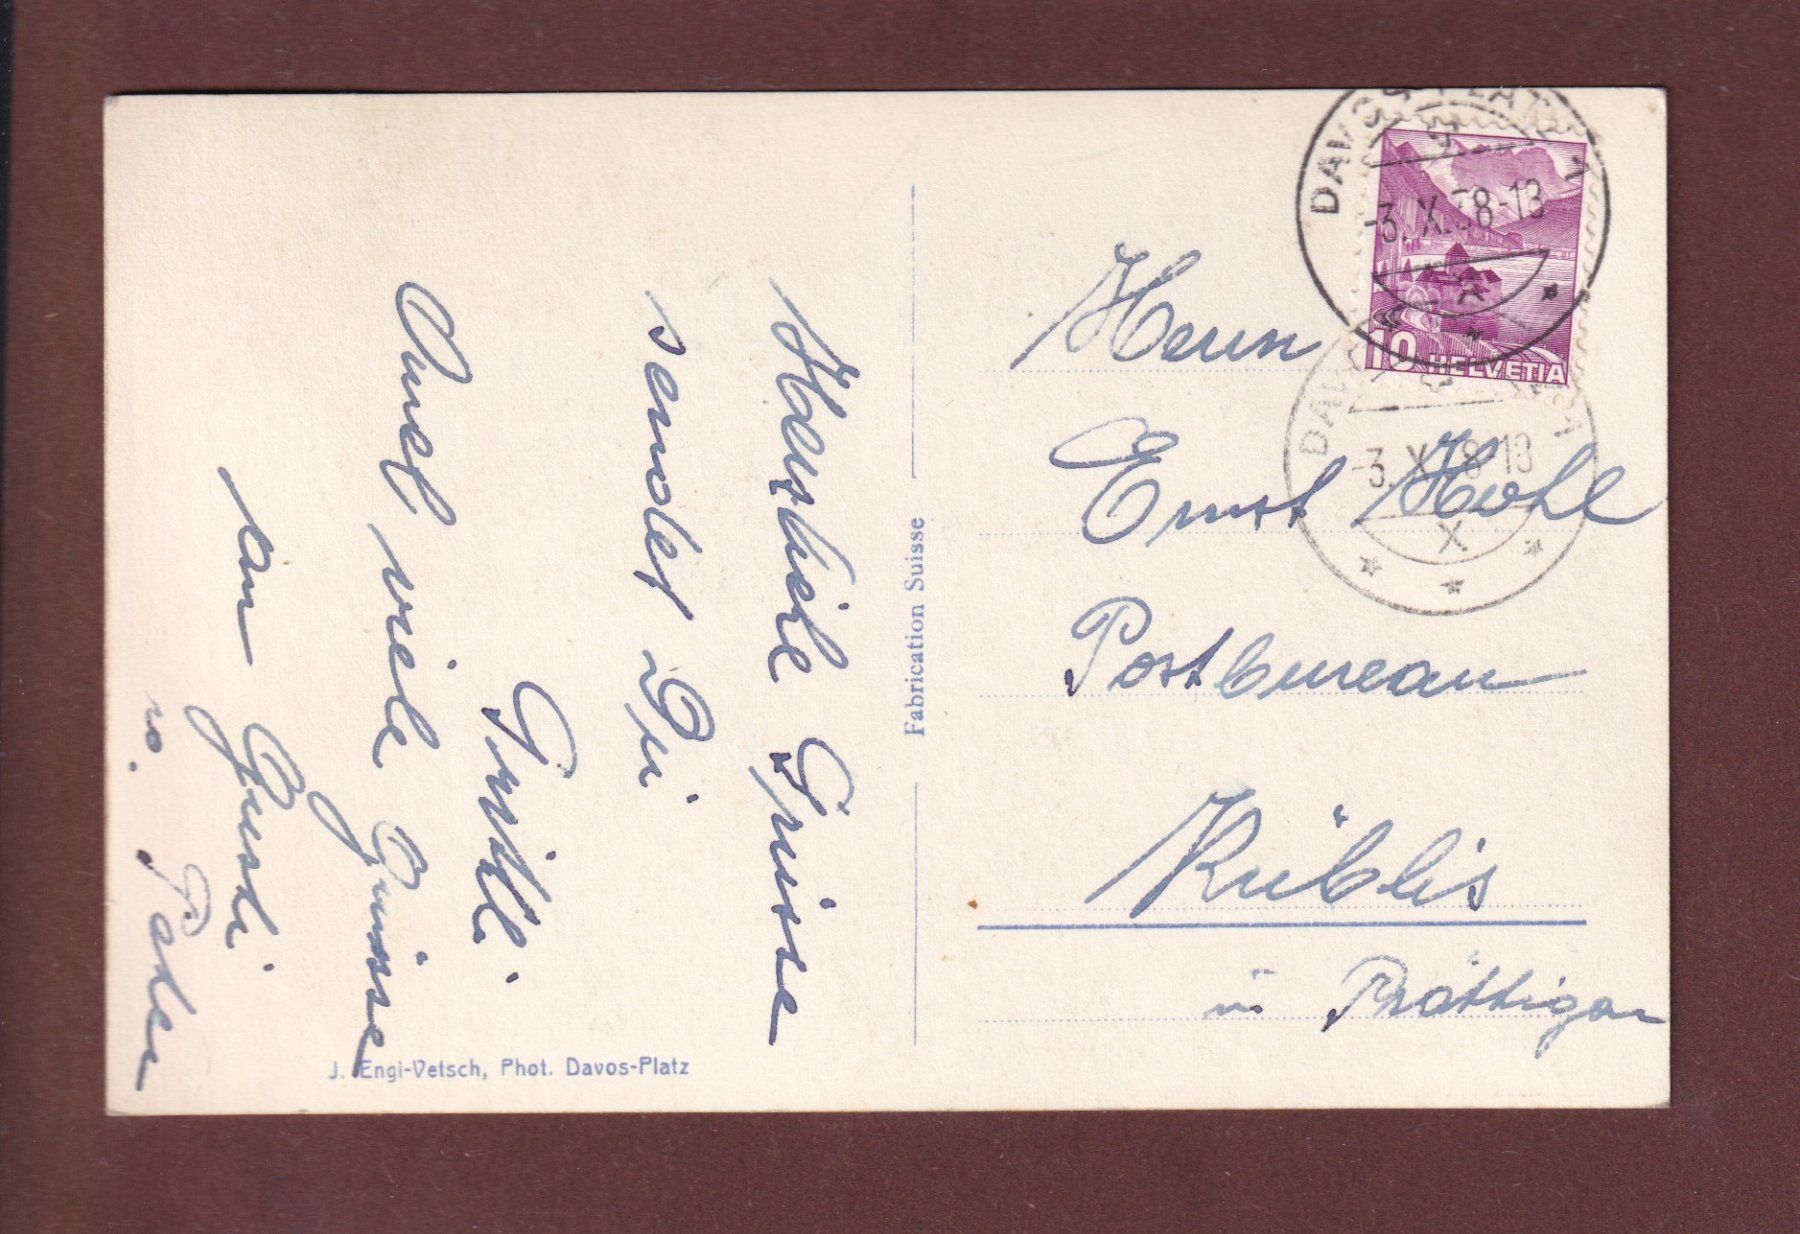 Herzliche Grüsse
sendet Dir
Auch viele Grüsse
an Gusti
u. Peter
J. Engi-Vetsch, Phot. Davos-Platz
Fabrication Suisse
DAVOS PLATZ 1
-3. X. 38-13
10 HELVETIA
DAV 1
-3. X. 38-13
X
Herrn
Ernst Hohl
Postbureau
Küblis
in Prättigau